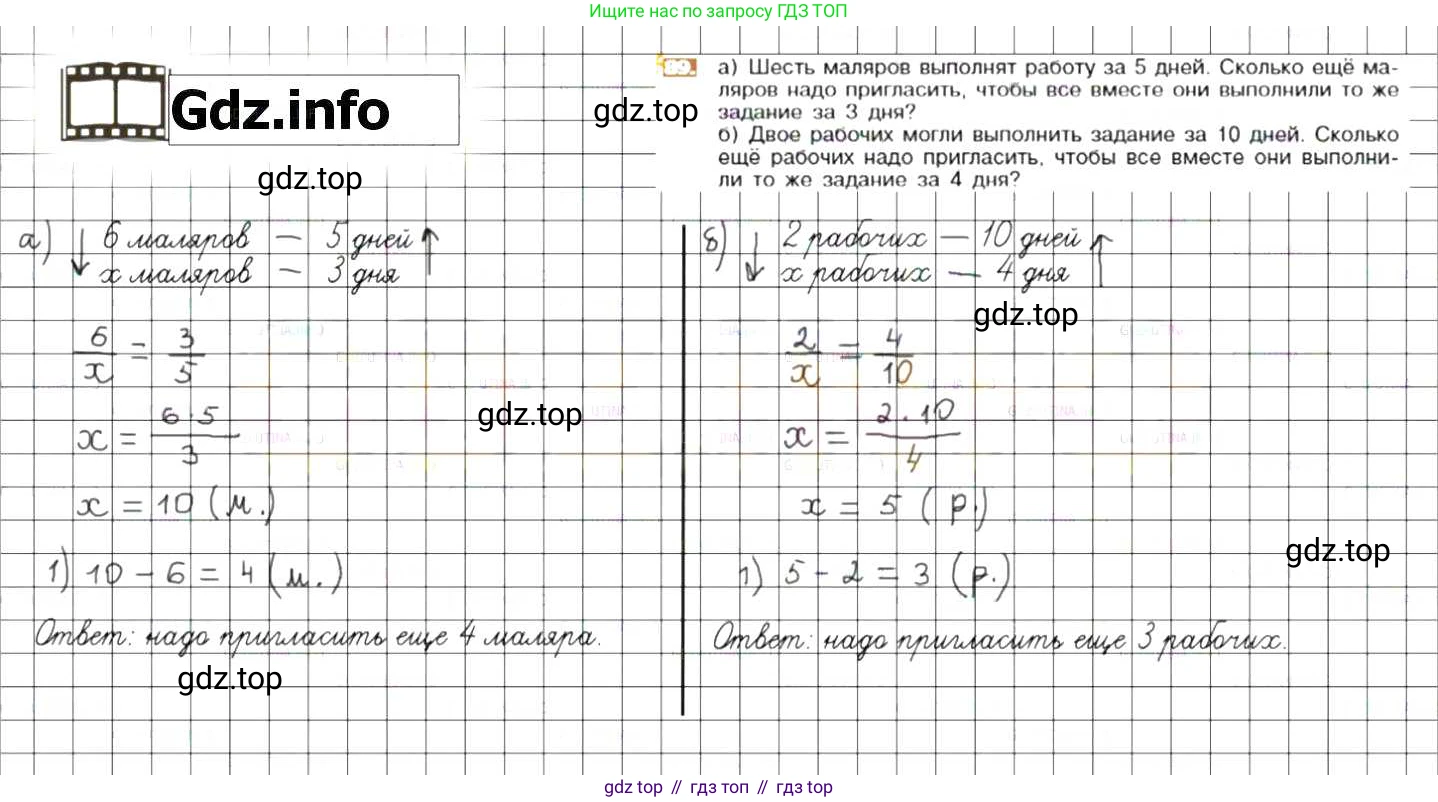 Ищите нас по запросу ГДЗ ТОП
Gdz.info
gdz.top
gdz.top
89. а) Шесть маляров выполнят работу за 5 дней. Сколько ещё ма-
ляров надо пригласить, чтобы все вместе они выполнили то же
задание за 3 дня?
б) Двое рабочих могли выполнить задание за 10 дней. Сколько
ещё рабочих надо пригласить, чтобы все вместе они выполни-
ли то же задание за 4 дня?
а) ↓ 6 маляров — 5 дней ↑
х маляров — 3 дня
6/х = 3/5
х = 6·5/3
х = 10 (м.)
1) 10 – 6 = 4 (м.)
Ответ: надо пригласить еще 4 маляра.
gdz.top
gdz.top
б) ↓ 2 рабочих — 10 дней ↑
х рабочих — 4 дня
gdz.top
2/х = 4/10
х = 2·10/4
х = 5 (р.)
1) 5 – 2 = 3 (р.)
gdz.top
Ответ: надо пригласить еще 3 рабочих.
gdz top // гдз топ // гдз top